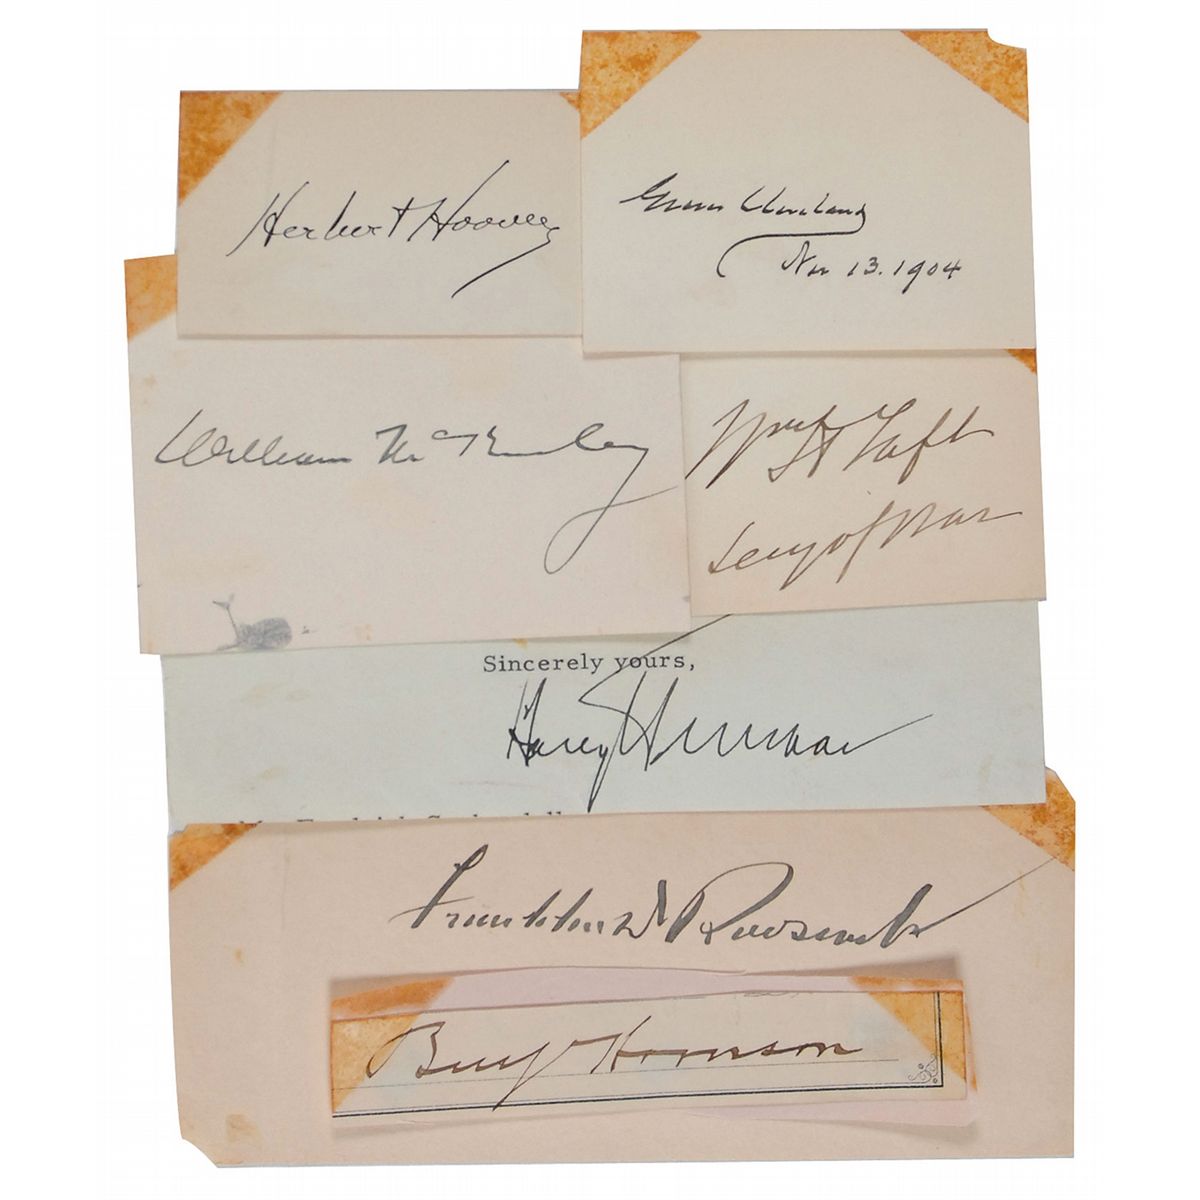 Herbert Hoover
Grover Cleveland
Nov 13. 1904
William McKinley
Wm H Taft
Secy of War
Sincerely yours,
Harry Truman
Franklin D Roosevelt
Benj Harrison